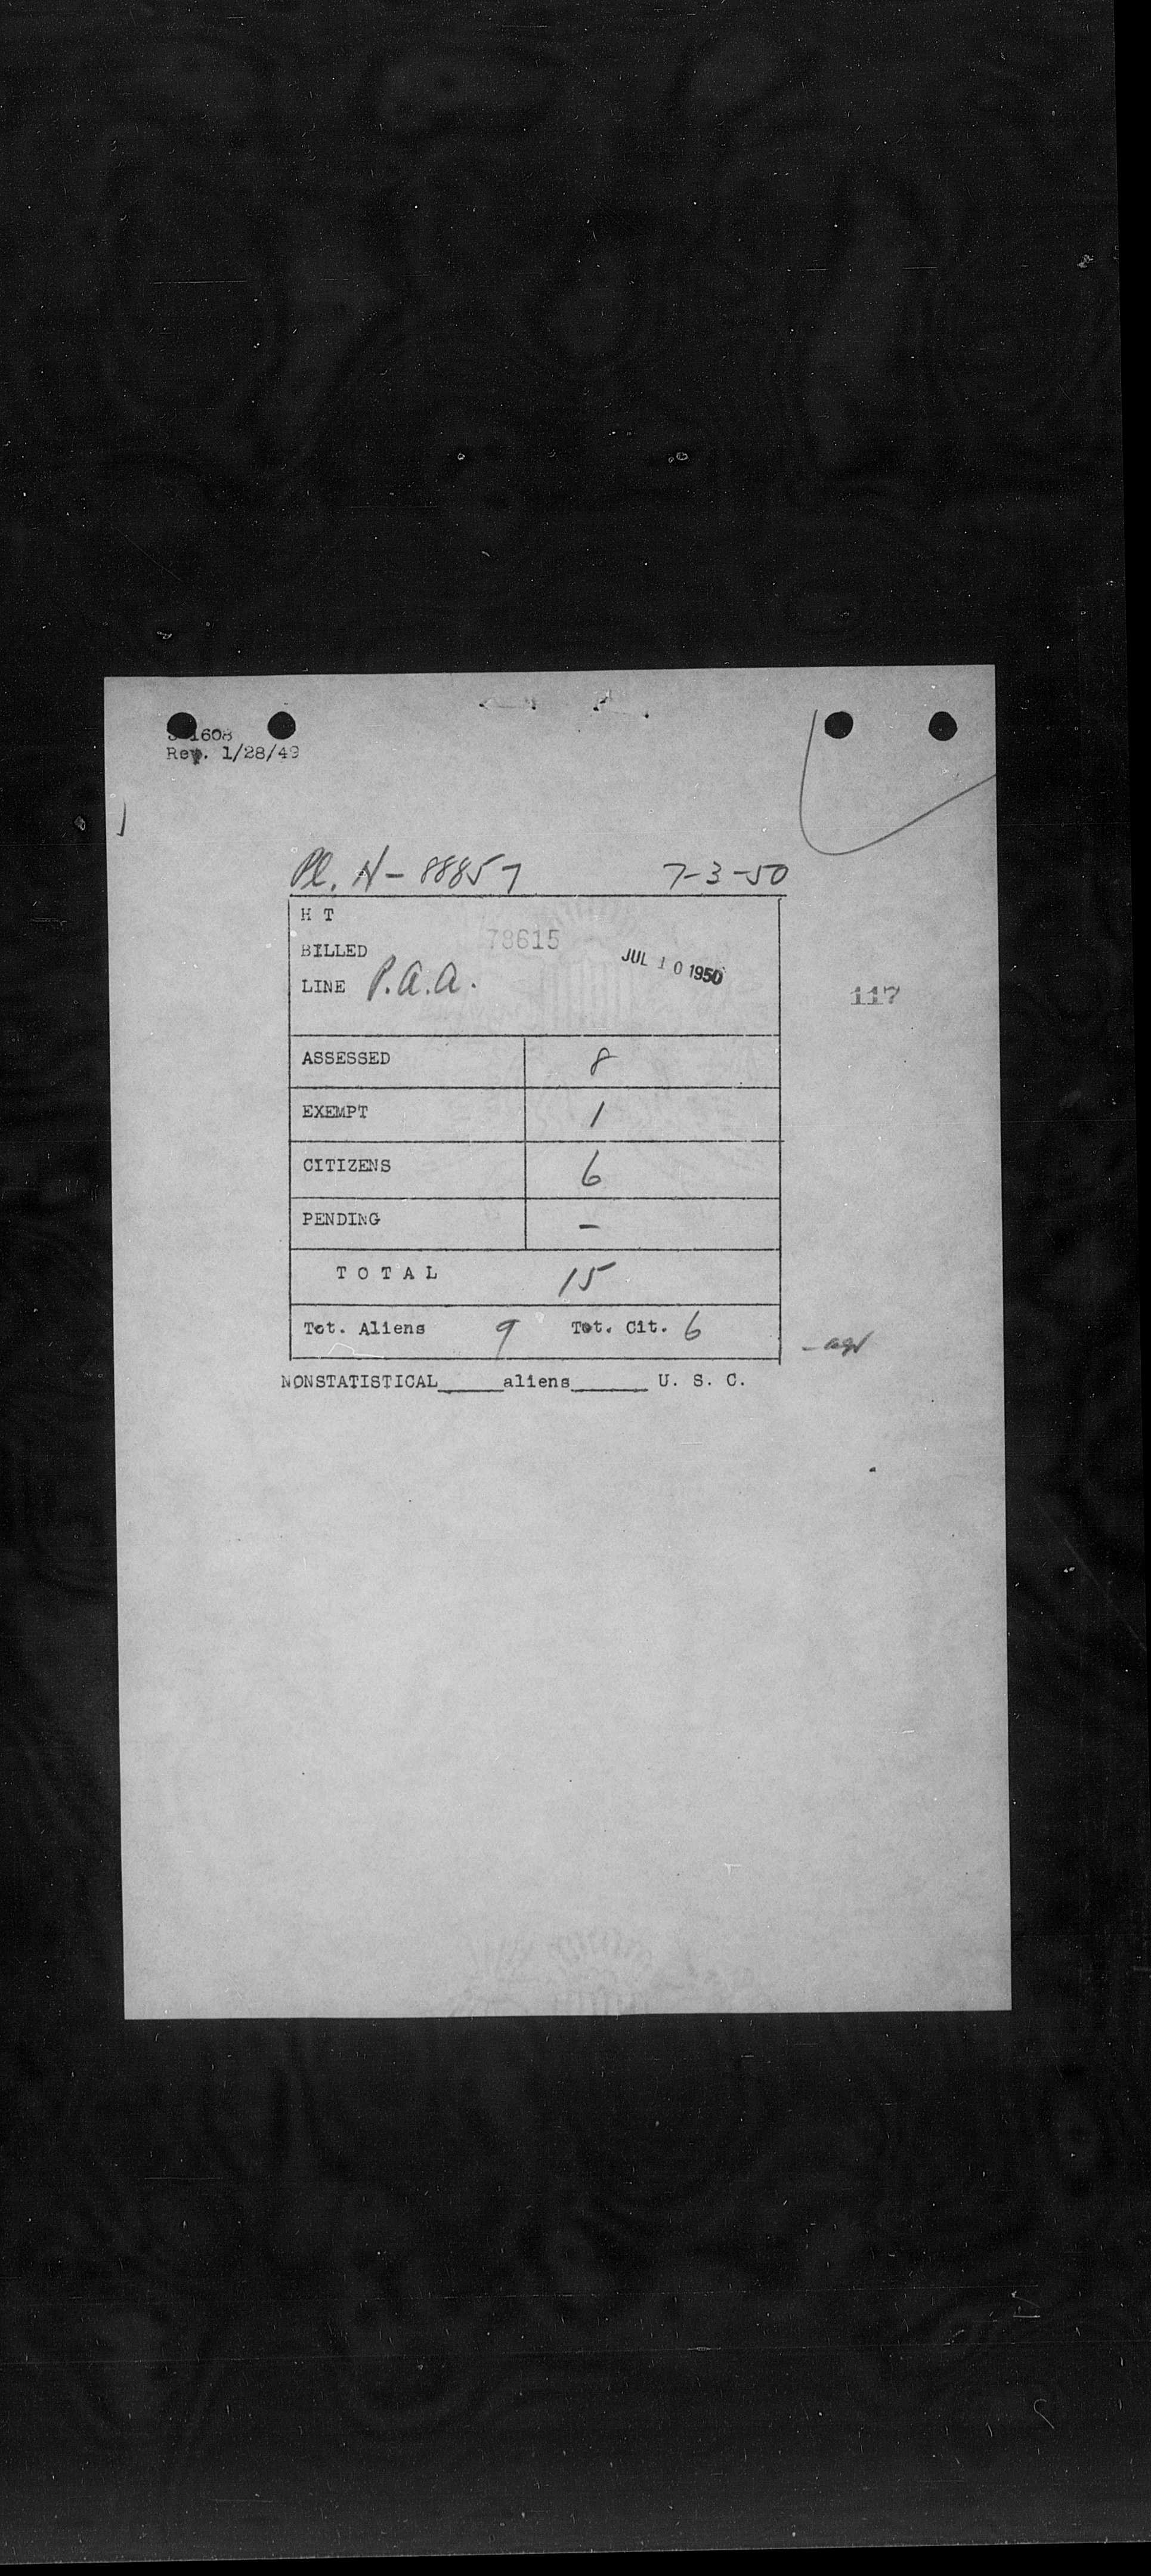 1608
Rev. 1/28/49
Pl. N-88857 7-3-50
H T
78615
BILLED
JUL 10 1950
LINE P.a.a.
117
ASSESSED 8
EXEMPT 1
CITIZENS 6
PENDING -
TOTAL 15
Tot. Aliens 9 Tot. Cit. 6
NONSTATISTICAL_____aliens______ U. S. C.